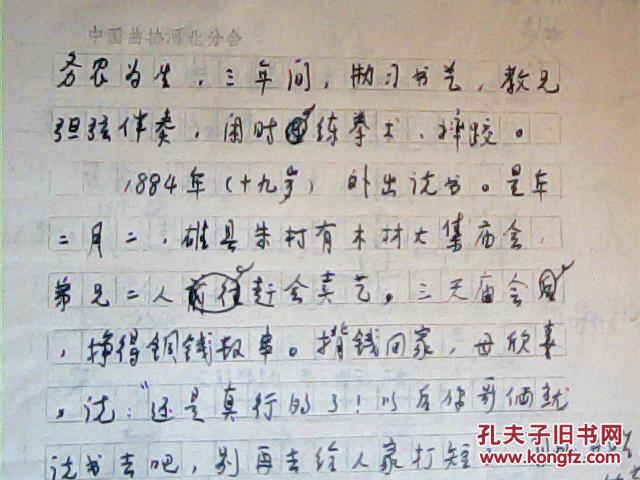 中国曲协河北分会
务农为生，三年间，勤习书艺，教兄
弹弦伴奏，闲时练拳术、摔跤。
1884年（十九岁）外出说书。是年
二月二，雄县朱村有木材大集庙会，
弟兄二人前往赶会卖艺。三天庙会
，挣得铜钱数串。揹钱回家，母欣喜
。说：“还是真行的了！以后你哥俩就
说书去吧，别再去给人家打短
孔夫子旧书网
www.kongfz.com